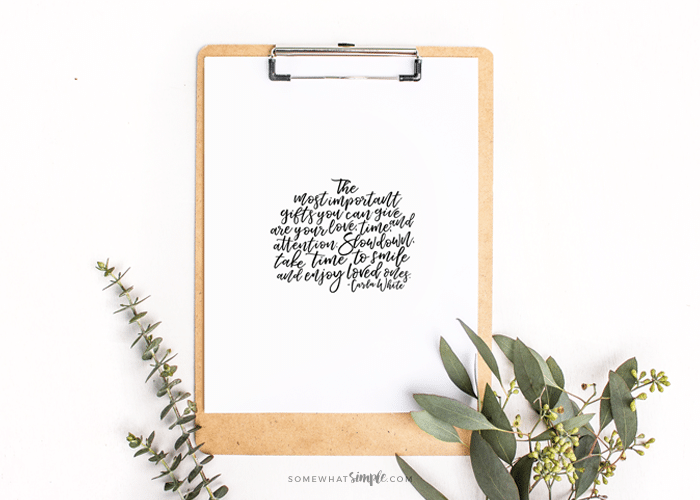 The
most important
gifts you can give
are your love, time, and
attention. Slow down,
take time to smile
and enjoy loved ones.
-Carla White
SOMEWHAT simple .COM